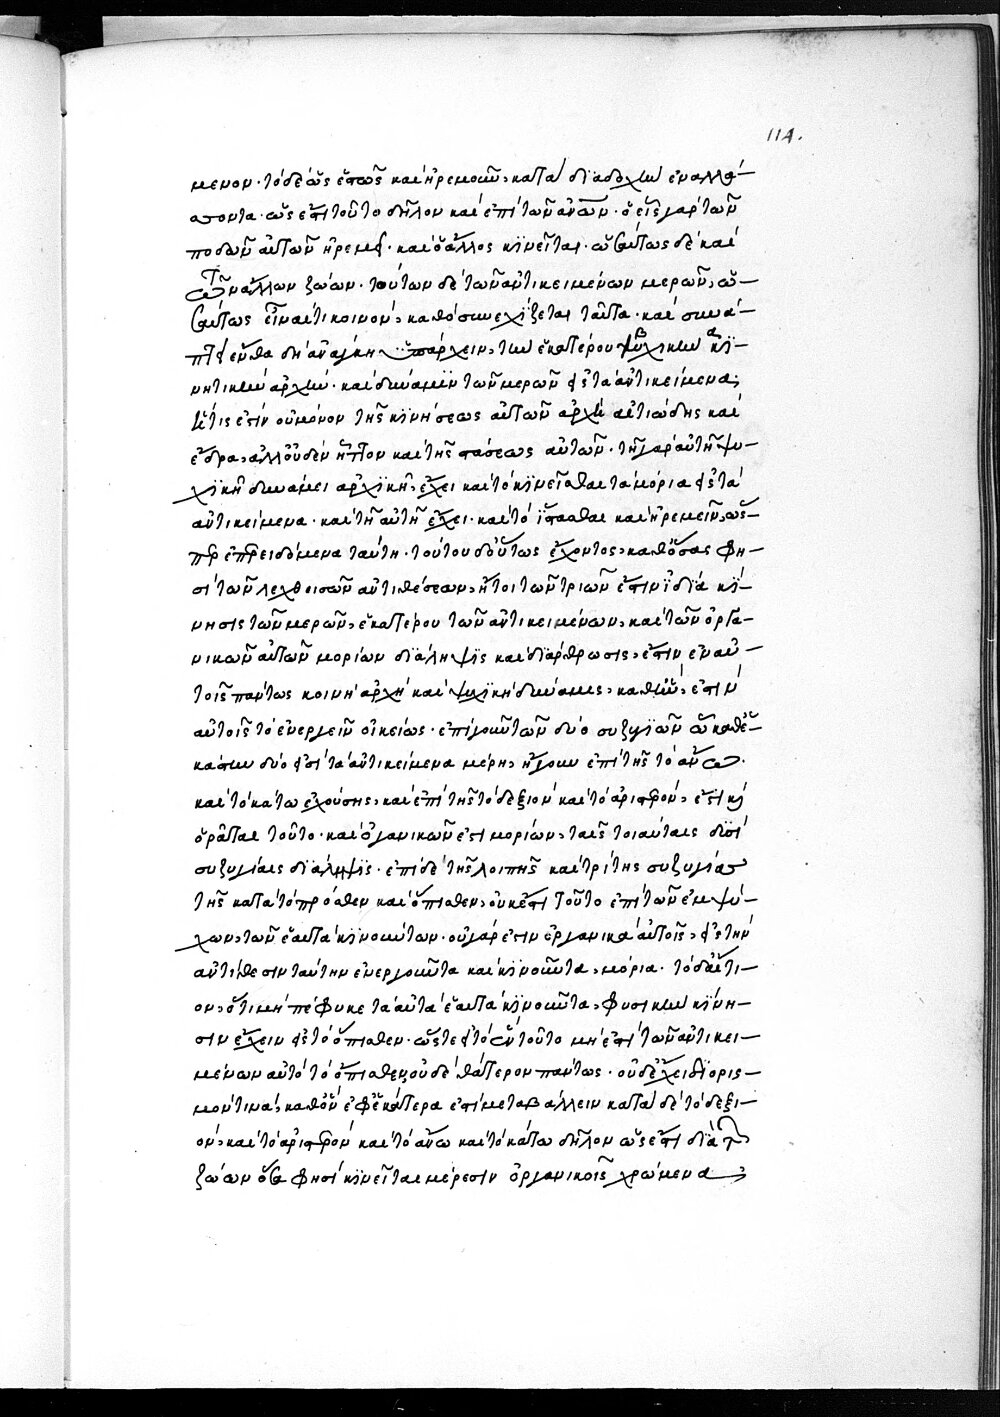 114.
μενον· τὸ δὲ ὡς ἑστὼς καὶ ἠρεμοῦν, κατὰ διαδοχὴν ἐναλλά-
σσοντα· ὡς ἐπὶ τοῦτο δῆλον καὶ ἐπὶ τῶν ἀνων· ὁ εἷς γὰρ τῶν
ποδῶν αὐτῶν ἠρεμεῖ· καὶ ὁ ἄλλος κινεῖται· ὡσαύτως δὲ καὶ
τῶν ἄλλων ζώων· τούτων δὲ τῶν ἀντικειμένων μερῶν, ὡ-
σαύτως εἶναί τι κοινόν, καθὸ συνεχίζεται ταῦτα· καὶ συνά-
πτει ἔνθα δὴ ἀνάγκη ὑπάρχειν, τὴν ἑκατέρου ψυχικὴν κι-
νητικὴν ἀρχήν· καὶ δύναμιν τῶν μερῶν εἰς τὰ ἀντικείμενα;
ἥτις ἐστὶν οὐ μόνον τῆς κινήσεως αὐτῶν ἀρχὴ αἰτιώδης καὶ
ἕδρα, ἀλλ' οὐδὲν ἧττον καὶ τῆς στάσεως αὐτῶν· τῇ γὰρ αὐτῇ ψυ-
χικῇ δυνάμει ἀρχικῇ, ἔχει καὶ τὸ κινεῖσθαι τὰ μόρια εἰς τὰ
ἀντικείμενα· καὶ τῇ αὐτῇ ἔχει· καὶ τὸ ἵστασθαι καὶ ἠρεμεῖν, ὥσ-
περ ἐπερειδόμενα ταύτῃ· τούτου δ' οὕτως ἔχοντος, καθ' ὅσας φη-
σὶ τῶν λεχθεισῶν ἀντιθέσεων, ἤτοι τῶν τριῶν ἐστιν ἰδία κί-
νησις τῶν μερῶν, ἑκατέρου τῶν ἀντικειμένων, καὶ τῶν ὀργα-
νικῶν αὐτῶν μορίων διάληψις καὶ διάρθρωσις, ἔστιν ἐν αὐ-
τοῖς πάντως κοινὴ ἀρχὴ καὶ ψυχικὴ δύναμις, καθ' ἣν, ἐστὶν
αὐτοῖς τὸ ἐνεργεῖν οἰκείως· ἐπὶ γοῦν τῶν δύο συζυγιῶν ὧν καθ' ἑ-
κάστην δύο εἰσὶ τὰ ἀντικείμενα μέρη, ἤγουν ἐπὶ τῆς τὸ ἄνω·
καὶ τὸ κάτω ἐχούσης, καὶ ἐπὶ τῆς τὸ δεξιὸν καὶ τὸ ἀριστερόν, ἔστι καὶ
ὁρᾶται τοῦτο· καὶ ὀργανικῶν ἐστι μορίων, ταῖς τοιαύταις δυσὶ
συζυγίαις διάληψις· ἐπὶ δὲ τῆς λοιπῆς καὶ τρίτης συζυγίας
τῆς κατὰ τὸ πρόσθεν καὶ ὄπισθεν, οὐκέτι τοῦτο ἐπὶ τῶν ἐμψύ-
χων, τῶν ἑαυτὰ κινούντων· οὐ γάρ ἐστιν ὀργανικὰ αὐτοῖς, εἰς τὴν
ἀντίθεσιν ταύτην ἐνεργοῦντα καὶ κινοῦντα, μόρια· τὸ δ' αἴτι-
ον, ὅτι μὴ πέφυκε τὰ αὐτὰ ἑαυτὰ κινοῦντα, φυσικὴν κίνη-
σιν ἔχειν εἰς τὸ ὄπισθεν· ὥστε εἰς τὸ τοῦτο μὴ ἐστὶ τῶν ἀντικει-
μένων αὐτὸ τὸ ὄπισθεν, οὐδὲ θάτερον πάντως· οὐδὲ ἔχει διορισ-
μόν τινα, καθ' ὃν ἐφ' ἑκάτερα ἐπιμεταβάλλειν κατὰ δὲ τὸ δεξι-
ὸν, καὶ τὸ ἀριστερὸν καὶ τὸ ἄνω καὶ τὸ κάτω δῆλον ὡς ἐστὶ διὰ τ
ζώων ὅσα φησὶ κινεῖται μέρεσιν ὀργανικοῖς χρώμενα